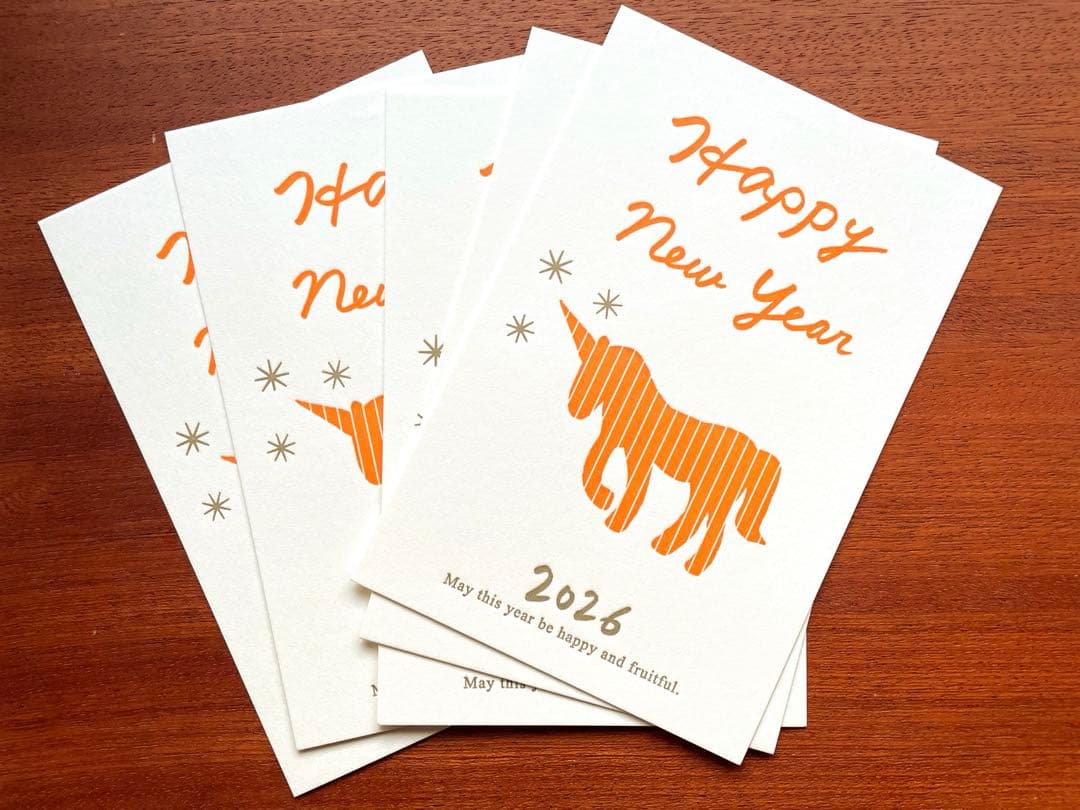 Happy
New Year
2026
May this year be happy and fruitful.
Ha
New
May this